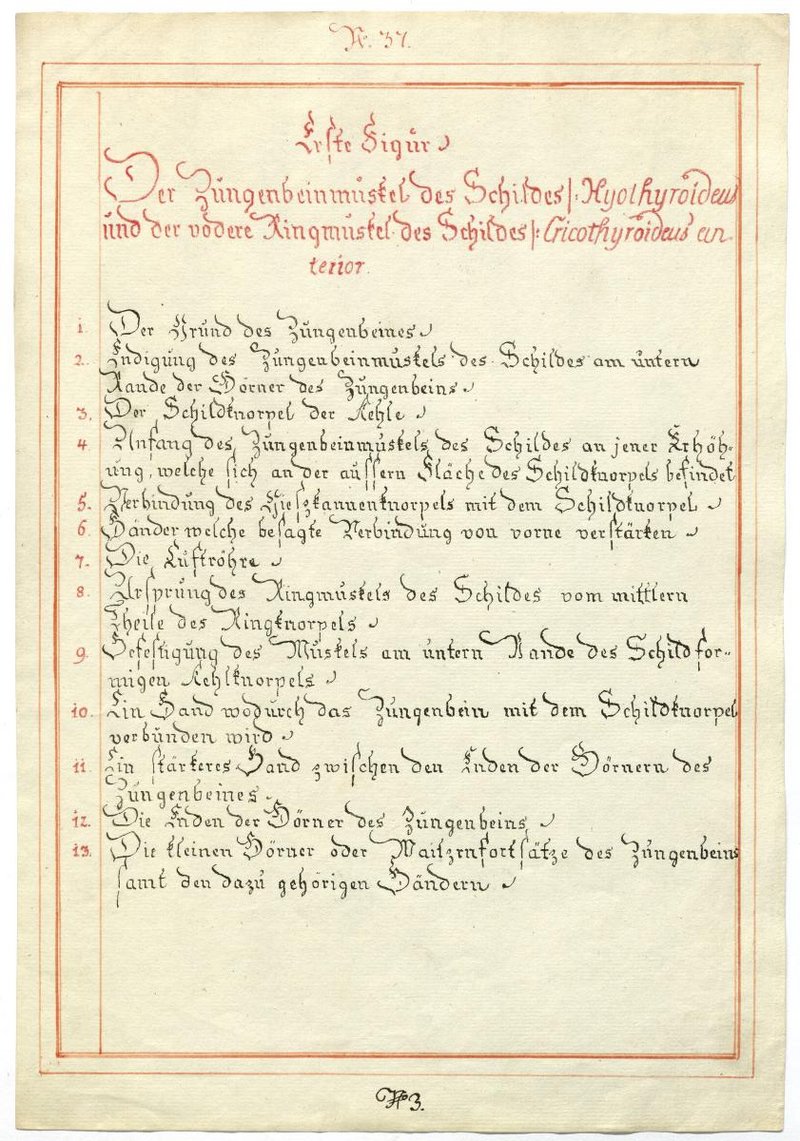 N. 37.
Erste Figur
Der Zungenbeinmuskel des Schildes |: Hyothyroideus
und der vodere Ringmuskel des Schildes |: Cricothyroideus an-
terior.
1. Der Grund des Zungenbeines
2. Endigung des Zungenbeinmuskels des Schildes am untern
Rande der Hörner des Zungenbeins
3. Der Schildknorpel der Kehle
4. Anfang des Zungenbeinmuskels des Schildes an jener Erhöh-
ung, welche sich an der aüssern Fläche des Schildknorpels befindet
5. Verbindung des Gieszkannenknorpels mit dem Schildknorpel
6. Bänder welche besagte Verbindung von vorne verstärken
7. Die Luftröhre
8. Ursprung des Ringmuskels des Schildes vom mittlern
Theile des Ringknorpels
9. Befestigung des Muskels am untern Rande des Schildför-
migen Kehlknorpels
10. Ein Band wodurch das Zungenbein mit dem Schildknorpel
verbunden wird
11. Ein stärkeres Band zwischen den Enden der Hörnern des
Zungenbeines
12. Die Enden der Hörner des Zungenbeins
13. Die kleinen Hörner oder Waitznfortsätze des Zungenbeins
samt den dazu gehörigen Bändern
3.